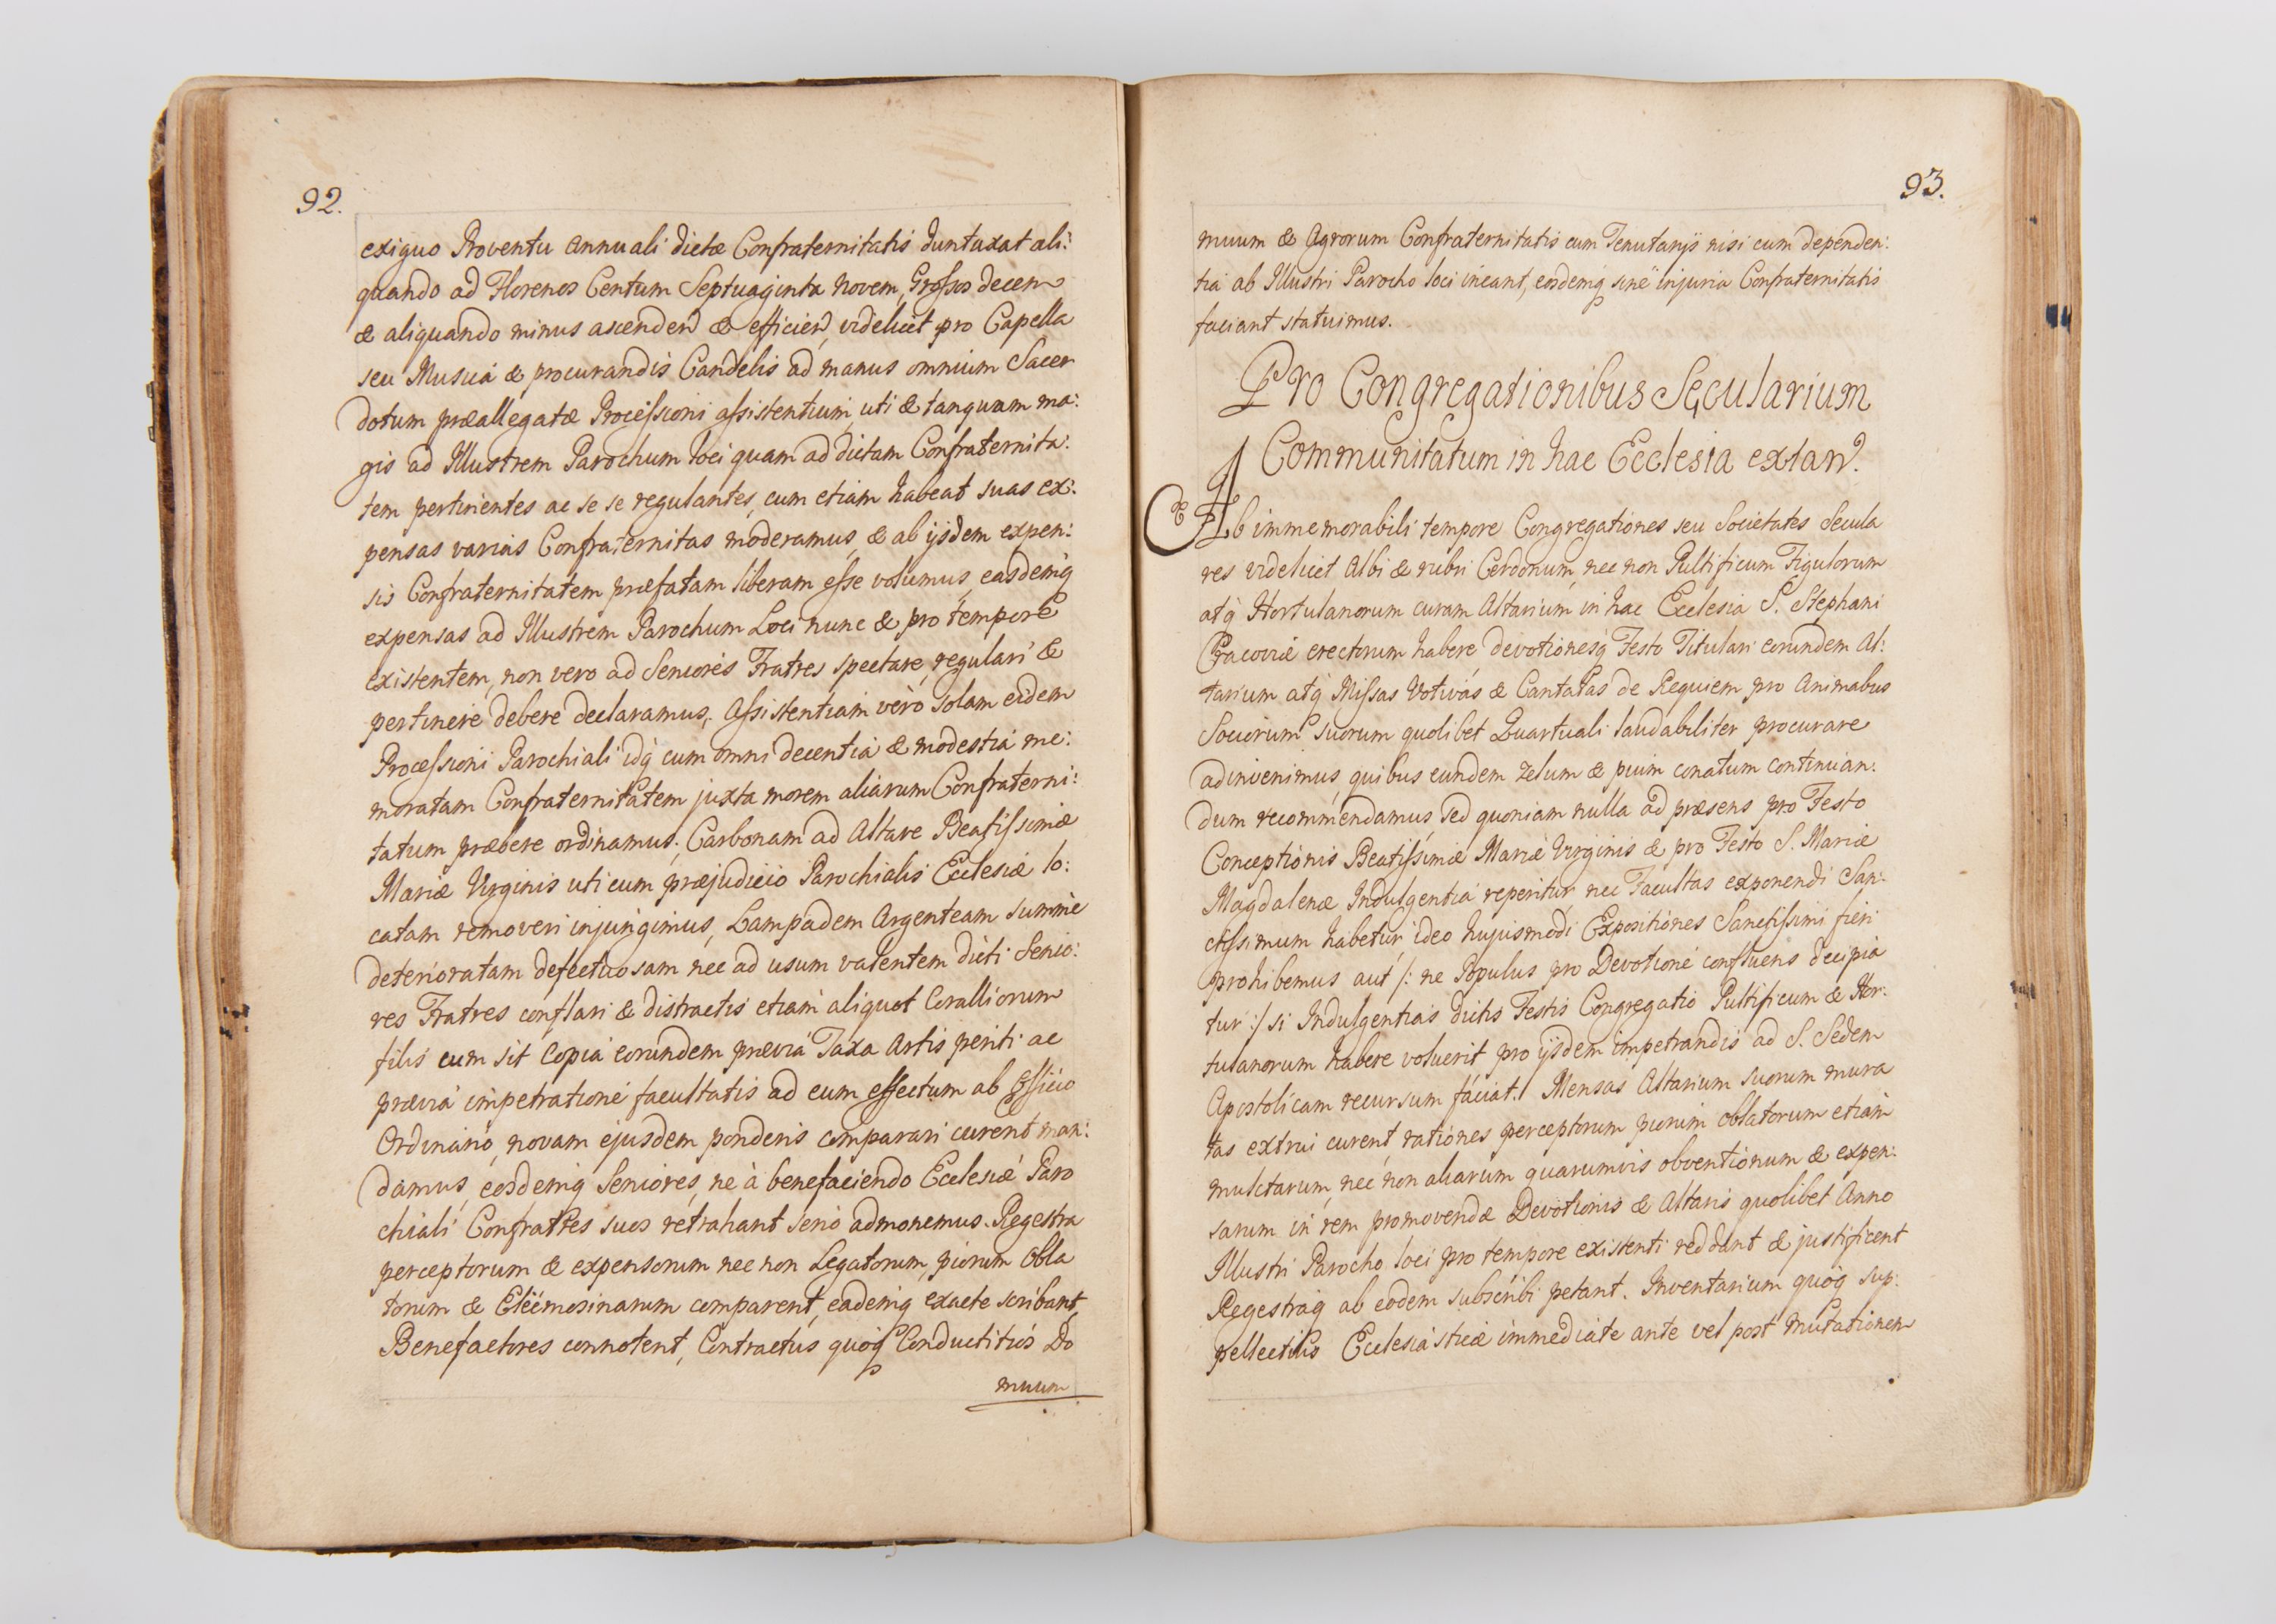 92.
exiguo Proventu Annuali dictæ Confraternitatis duntaxat ali:
quando ad Florenos Centum Septuaginta Novem, Grossos decem
& aliquando minus ascenden & efficien, videlicet pro Capella
seu Musica & procurandis Candelis ad manus omnium Sacer
dotum præallegatæ Processioni assistentium, uti & tanquam ma:
gis ad Illustrem Parochum loci quam ad dictam Confraternita:
tem pertinentes ac se se regulantes, cum etiam habeat suas ex:
pensas varias Confraternitas moderamus, & ab ijsdem expen:
sis Confraternitatem præfatam liberam esse volumus, easdemq
expensas ad Illustrem Parochum Loci nunc & pro tempore
existentem, non vero ad Seniores Fratres spectare, regulari &
pertinere debere declaramus, Assistentiam verò solam eidem
Processioni Parochiali idq cum omni decentia & modestia me:
moratam Confraternitatem juxta morem aliarum Confraterni:
tatum præbere ordinamus; Carbonam ad Altare Beatissimæ
Mariæ Virginis uti cum præjudicio Parochialis Ecclesiæ lo:
catam removeri injungimus, Lampadem Argenteam summè
deterioratam defectuosam nec ad usum valentem dicti Senio:
res Fratres conflari & distractis etiam aliquot Coralliorum
filis cum sit Copia eorundem prævia Taxa Artis periti ac
prævia impetratione facultatis ad eum effectum ab Officio
Ordinario, novam ejusdem ponderis comparari curent man:
damus, eosdemq Seniores, ne à benefaciendo Ecclesiæ Paro
chiali Confratres suos retrahant serio admonemus. Regestra
perceptorum & expensorum nec non Legatorum, piorum Obla
torum & Eleemosinarum comparent, eademq exacte scribant,
Benefactores connotent, Contractus quoq Conductitios Do
muum
93.
muum & Agrorum Confraternitatis cum Tenutarijs nisi cum dependen:
tia ab Illustri Parocho loci ineant, eosdemq sine injuria Confraternitatis
faciant statuimus.
Pro Congregationibus Secularium
Communitatum in hac Ecclesia extan.
Ab immemorabili tempore Congregationes seu Societates Secula
res videlicet Albi & rubri Cerdonum, nec non Pultificum Figulorum
atq Hortulanorum curam Altarium in hac Ecclesia S. Stephani
Cracoviæ erectorum habere devotionesq Festo Titulari eorundem Al:
tarium atq Missas Votivas & Cantatas de Requiem pro Animabus
Sociorum suorum quolibet Quartuali laudabiliter procurare
adinvenimus, quibus eundem zelum & pium conatum continuan:
dum recommendamus, sed quoniam nulla ad præsens pro Festo
Conceptionis Beatissimæ Mariæ Virginis & pro Festo S. Mariæ
Magdalenæ Indulgentia reperitur, nec Facultas exponendi San:
ctissimum habetur, ideo hujusmodi Expositiones Sanctissimi fieri
prohibemus aut /: ne Populus pro Devotione confluens decipia
tur :/ si Indulgentias dictis Festis Congregatio Pultificum & Hor:
tulanorum habere voluerit, pro ijsdem impetrandis ad S. Sedem
Apostolicam recursum faciat. Mensas Altarium suorum mura
tas extrui curent, rationes perceptorum piorum Oblatorum etiam
mulctarum, nec non aliarum quarumvis obventionum & expen:
sarum in rem promovendæ Devotionis & Altaris quolibet Anno
Illustri Parocho loci pro tempore existenti reddant & justificent
Regestraq ab eodem subscribi petant. Inventarium quoq sup:
pellectilis Ecclesiasticæ immediate ante vel post Mutationem